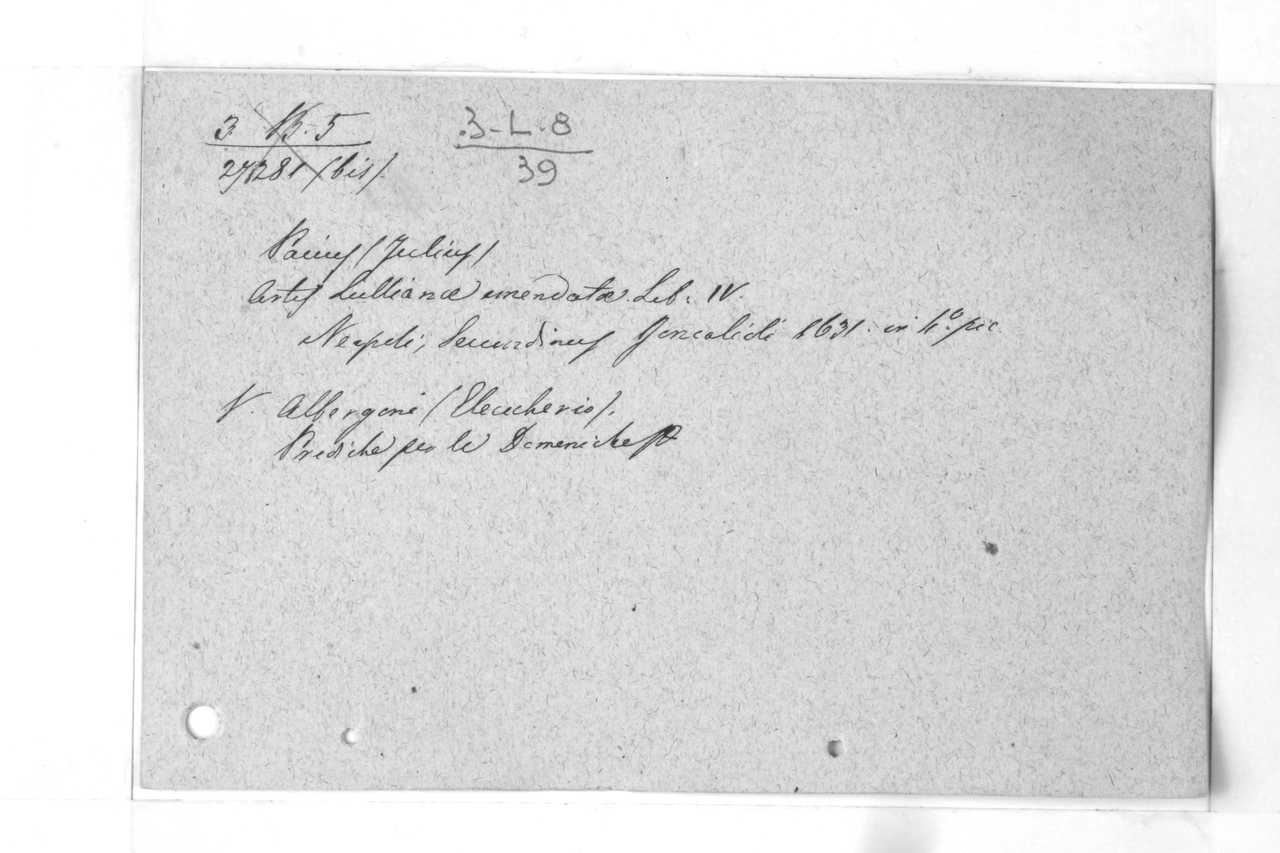 3 B. 5
3-L-8
27,281 (bis).
39
Pacius (Julius)
Artis Lullianæ emendatæ Lib. IV.
Neapoli, Secundinus Roncalioli 1631. in 4.º pic
V. Albergoni (Eleucherio).
Prediche per le Domeniche